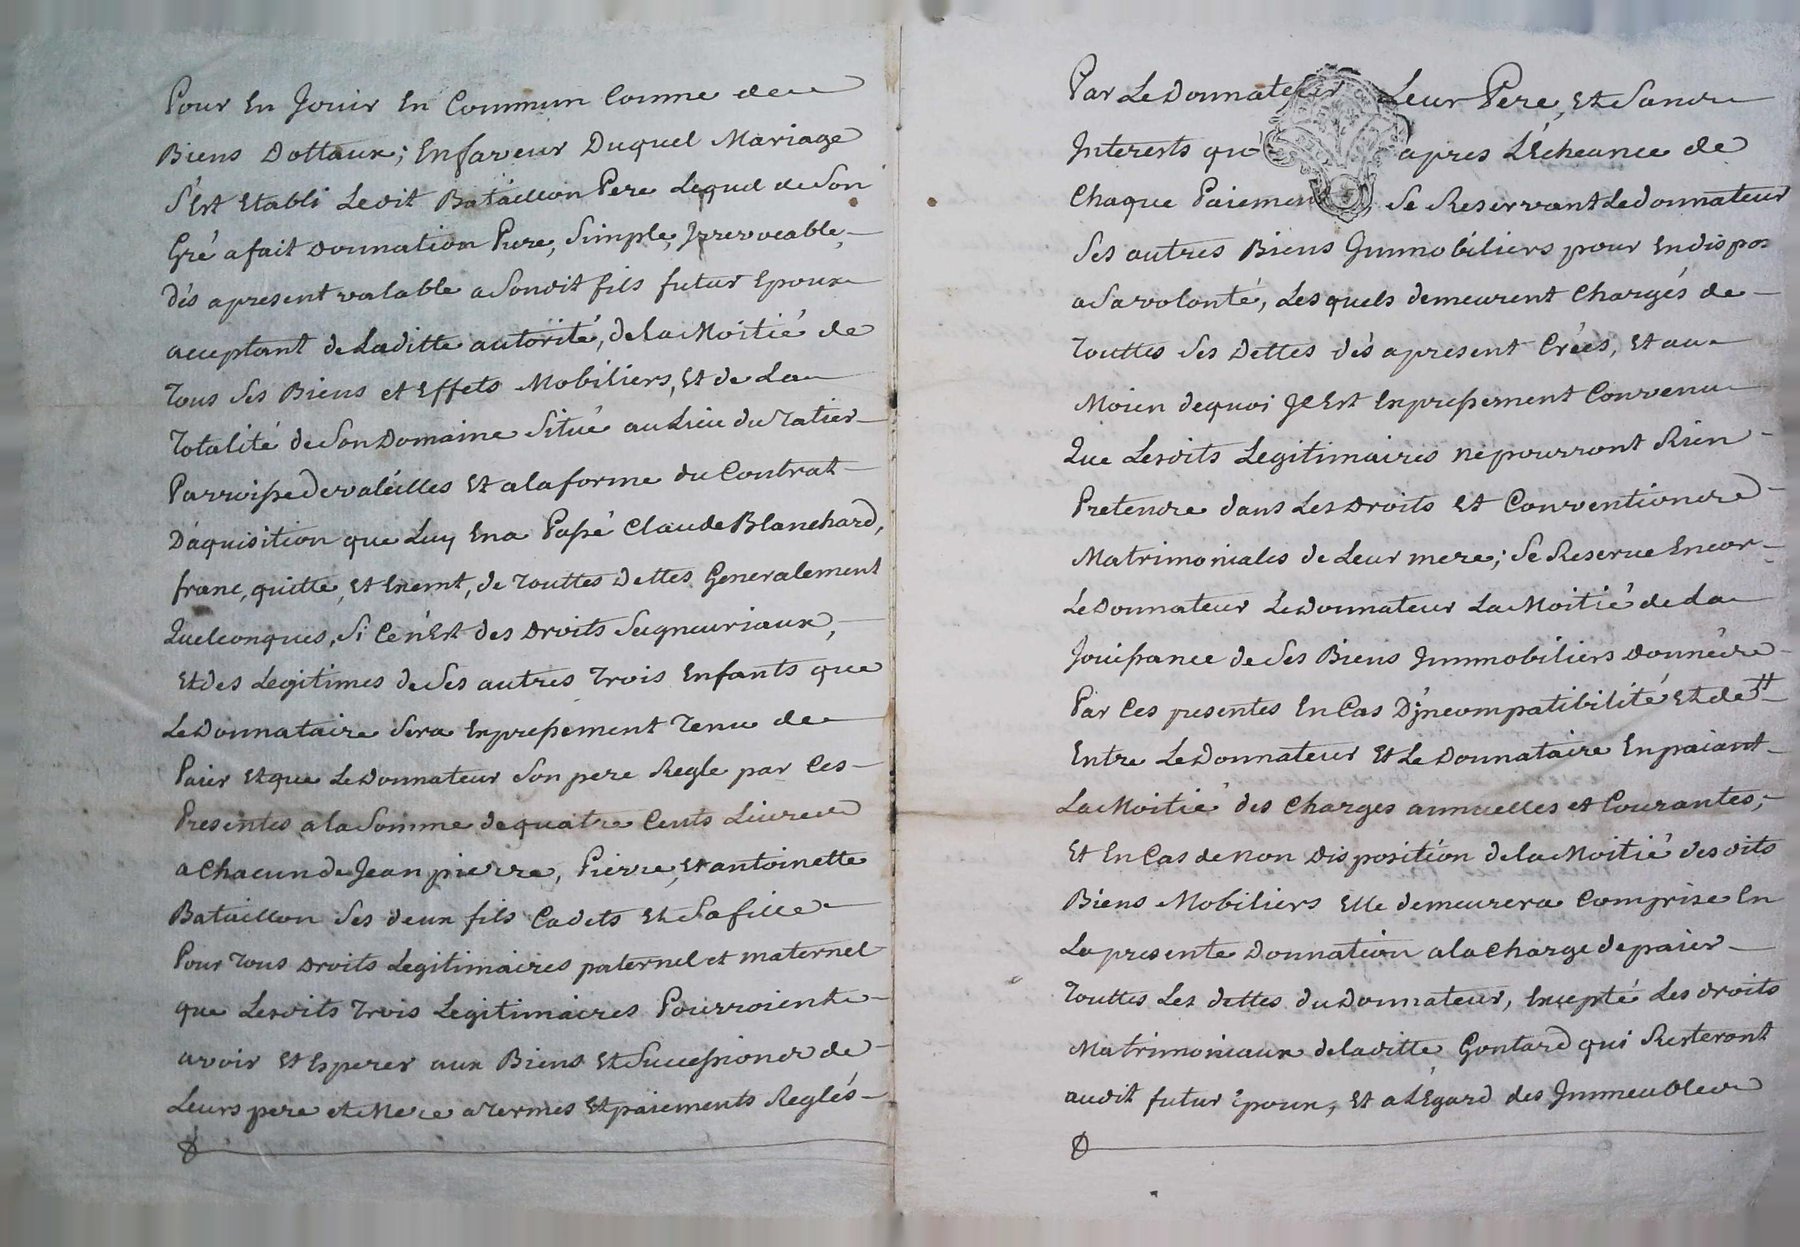 Pour En Jouir En Commun Comme de
Biens Dottaux; En faveur Duquel Mariage
S'Est Etabli Ledit Bataillon Pere Lequel de Son
Gré a fait Donnation Pure, Simple, Irrevocable,
dés apresent valable a Sondit fils futur Epoux
acceptant de Laditte autorité, de la Moitié de
Tous Ses Biens et Effets Mobiliers, Et de La
Totalité de Son Domaine Situé au Lieu du Ratier
Parroisse de valeilles Et a la forme du Contrat
D'aquisition que Luy En a Passé Claude Blanchard,
franc, quitte, Et Exemt, de Touttes Dettes Generalement
Quelconques, Si Ce n'Est des Droits Seigneuriaux,
Et des Legitimes de Ses autres Trois Enfants que
Le Donnataire Sera Expressement Tenu de
Paier Et que Le Donnateur Son pere Regle par Ces
Presentes a la Somme de quatre Cents Livres
a Chacun de Jean pierre, Pierre, Et antoinette
Bataillon Ses deux fils Cadets Et Sa fille
Pour Tous Droits Legitimaires paternel et maternel
que Lesdits Trois Legitimaires Pourroient
avoir Et Esperer aux Biens Et Successions de
Leurs pere et Mere a Termes Et paiements Reglés
Par Le Donnateur Leur Pere, Et Sans
Interests qu apres L'Echeance de
Chaque Paiement Se Reservant Le donnateur
Ses autres Biens Immobiliers pour En dispos
a Sa volonté, Lesquels demeurent Chargés de
Touttes Ses Dettes dés apresent Créés, Et au
Moien dequoi Il Est Expressement Convenu
Que Lesdits Legitimaires ne pourront Rien
Pretendre dans Les Droits Et Conventions
Matrimoniales de Leur mere; Se Reserve Encor
Le Donnateur Le Donnateur La Moitié de La
Jouissance de Ses Biens Immobiliers Donnés
Par Ces presentes En Cas D'jncompatibilité Et de
Entre Le Donnateur Et Le Donnataire En paiant
La Moitié des Charges annuelles et Courantes;
Et En Cas de non Disposition de la Moitié desdits
Biens Mobiliers Elle demeurera Comprise En
La presente Donnation a la Charge de paier
Touttes Les dettes du Donnateur, Excepté Les droits
Matrimoniaux de laditte Gontard qui Resteront
audit futur Epoux, Et a L'Egard des Immeubles